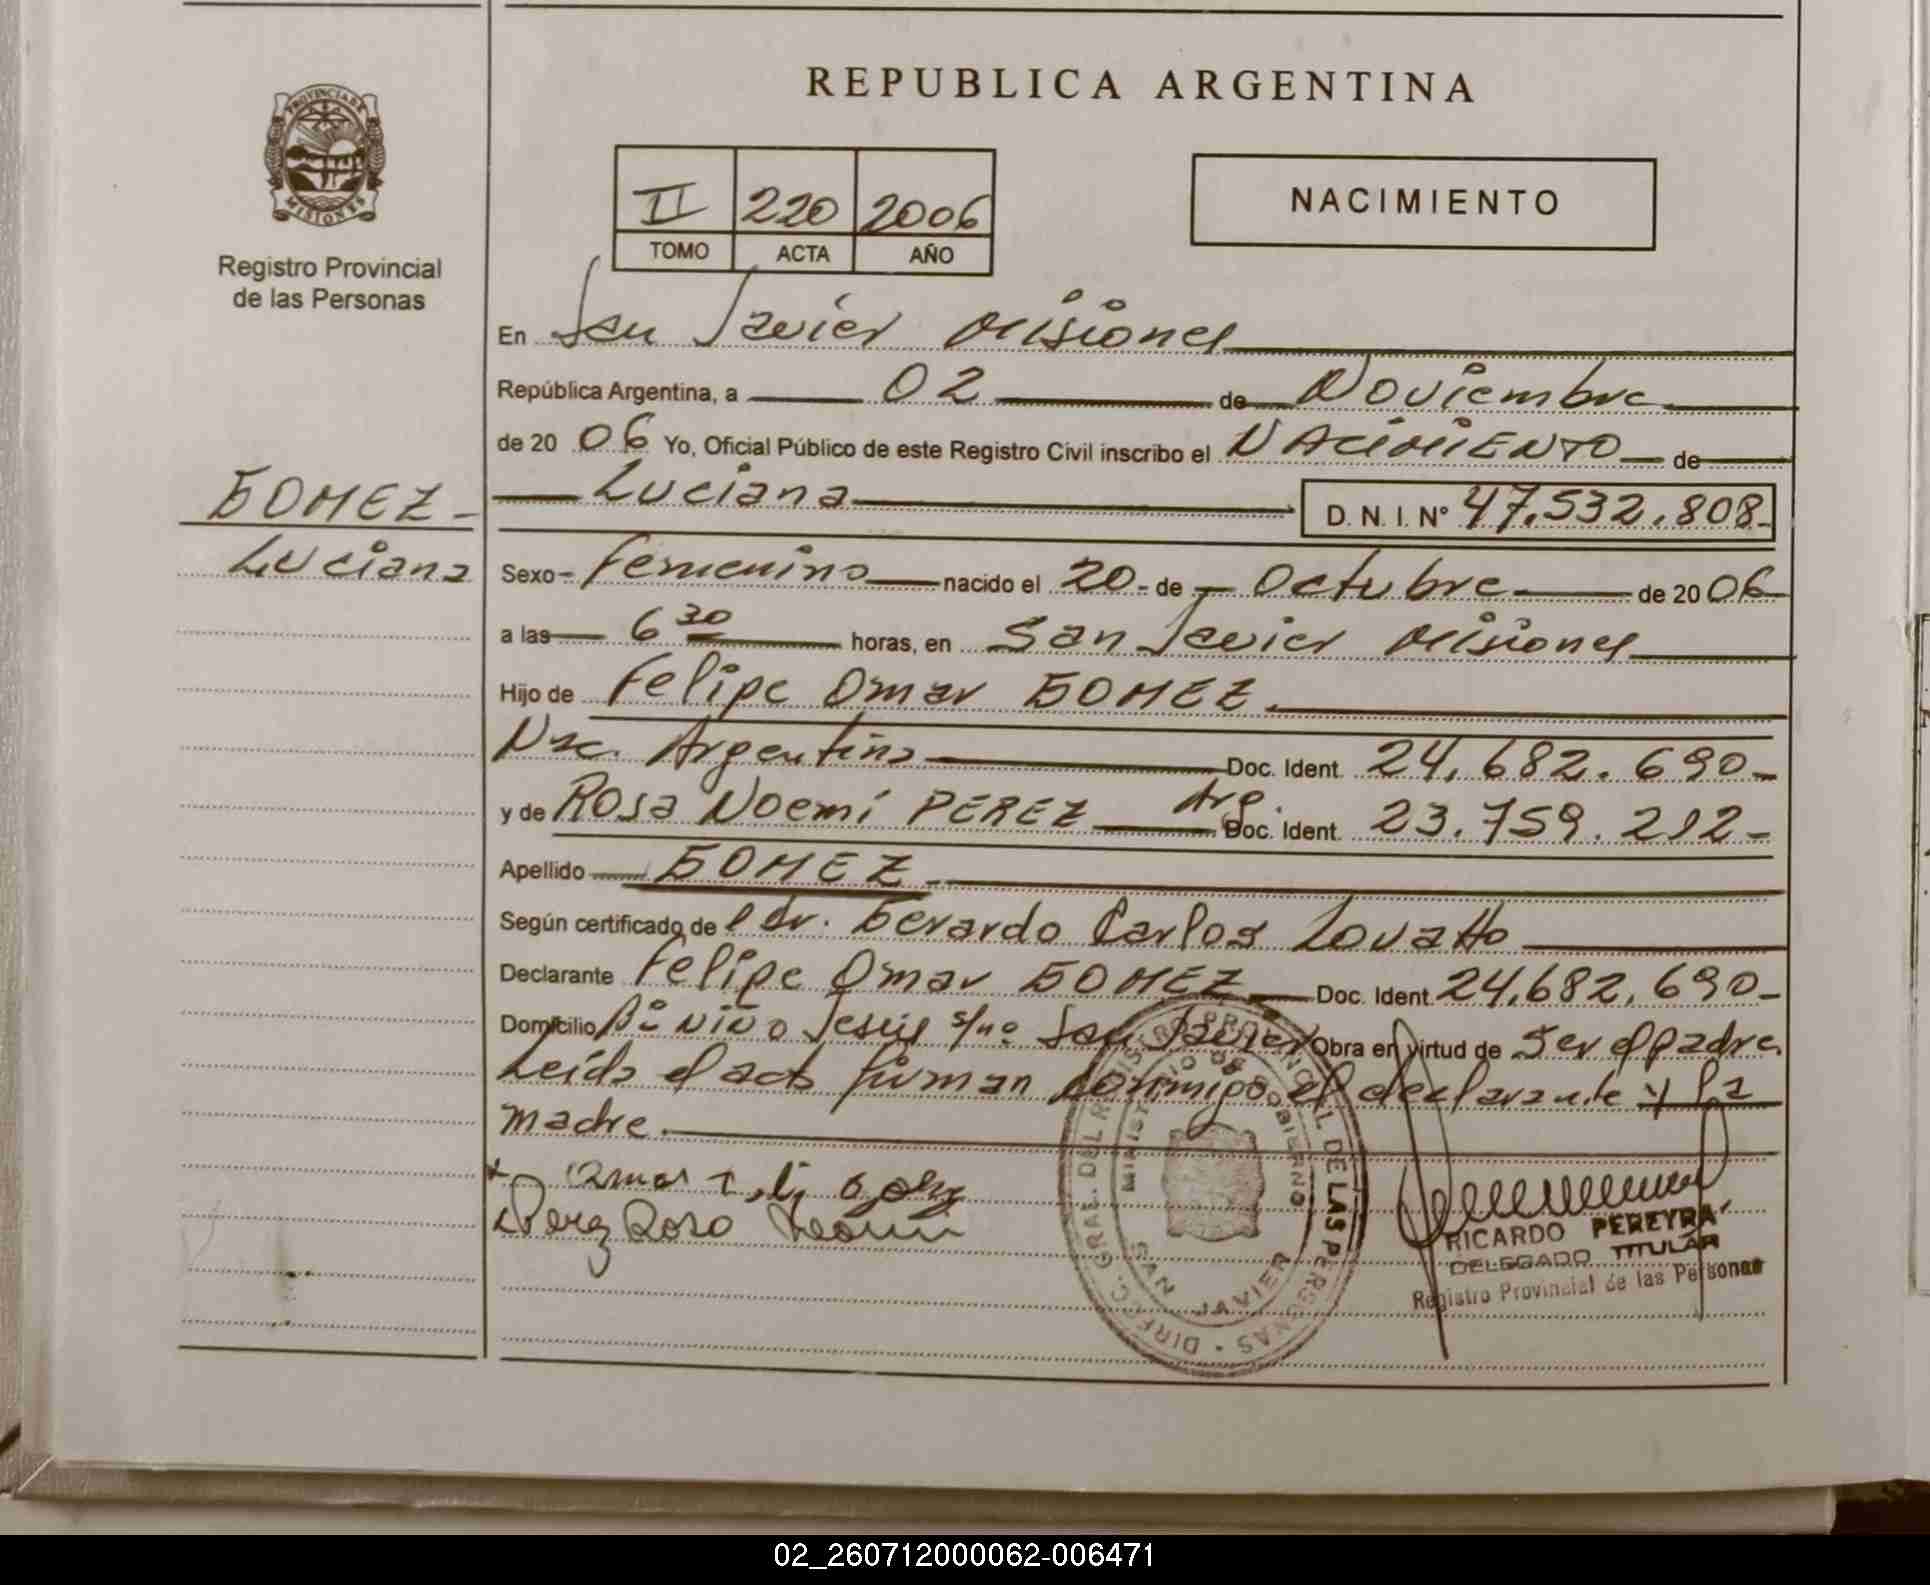 REPUBLICA ARGENTINA
PROVINCIA DE MISIONES
Registro Provincial
de las Personas
II 220 2006
TOMO ACTA AÑO
NACIMIENTO
En San Javier Misiones
República Argentina, a 02 de Noviembre
de 20 06 Yo, Oficial Público de este Registro Civil inscribo el NACIMIENTO de
Luciana D. N. I. N° 47.532.808-
GOMEZ-
Luciana
Sexo- Femenino nacido el 20- de Octubre de 20 06
a las 6 30 horas, en San Javier Misiones
Hijo de Felipe Omar GOMEZ.
Nac. Argentina Doc. Ident. 24.682.690-
y de Rosa Noemí PEREZ Arg. Doc. Ident. 23.759.212-
Apellido GOMEZ-
Según certificado de el Dr. Gerardo Carlos Lovatto
Declarante Felipe Omar GOMEZ Doc. Ident 24.682.690-
Domicilio B° NIÑO Jesús s/n° San Javier Obra en virtud de Ser el padre.
Leída el acta firman conmigo el declarante y la
madre.
Perez Rosa Noemi
DIREC. GRAL. DEL REGISTRO PROVINCIAL DE LAS PERSONAS
MINISTERIO DE GOBIERNO
SAN JAVIER
RICARDO PEREYRA
DELEGADO TITULAR
Registro Provincial de las Personas
02_260712000062-006471